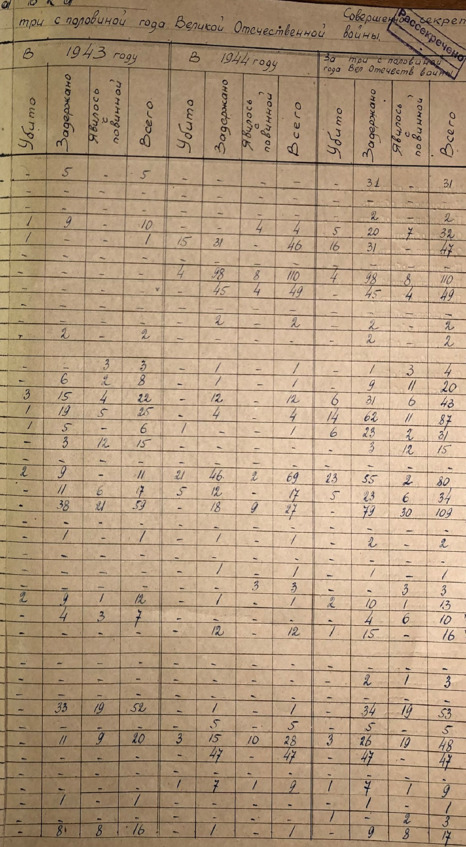 Совершенно секрет
Рассекречено
три с половиной года Великой Отечественной войны.
В 1943 году В 1944 году За три с половиной
года Вел Отечеств войны
Убито Задержано Явилось с повинной Всего Убито Задержано Явилось с повинной Всего Убито Задержано Явилось с повинной Всего
- 5 - 5 - - - - - - - -
- - - - - - - - - 31 - 31
- - - - - - - - - - - -
- - - - - - - - - 2 - 2
1 9 10 - - 4 4 5 20 7 32
1 - - 1 15 31 - 46 16 31 - 47
- - - - - - - - - - - -
- - - - 4 98 8 110 4 98 8 110
- - - - - 45 4 49 - 45 4 49
- - - - - - - - - - - -
- - - - - 2 - 2 - 2 - 2
- 2 - 2 - - - - - 2 - 2
- - 3 3 - 1 - 1 - 1 3 4
- 6 2 8 - 1 - 1 - 9 11 20
3 15 4 22 - 12 - 12 6 31 6 43
1 19 5 25 - 4 - 4 14 62 11 87
1 5 - 6 1 - - 1 6 23 2 31
- 3 12 15 - - - - - 3 12 15
- - - - - - - - - - - -
2 9 - 11 21 46 2 69 23 55 2 80
- 11 6 17 5 12 - 17 5 23 6 34
- 38 21 59 - 18 9 27 - 79 30 109
- - - - - - - - - - - -
- 1 - 1 - 1 - 1 - 2 - 2
- - - - - - - - - - - -
- - - - - 1 - 1 - 1 - 1
- - - - - - 3 3 - - 3 3
2 9 1 12 - 1 - 1 2 10 1 13
- 4 3 7 - - - - - 4 6 10
- - - - - 12 - 12 1 15 - 16
- - - - - - - - - - - -
- - - - - - - - - - - -
- - - - - - - - - 2 1 3
- - - - - - - - - - - -
- 33 19 52 - 1 - 1 - 34 19 53
- - - - - 5 - 5 - 5 - 5
- 11 9 20 3 15 10 28 3 26 19 48
- - - - - 47 - 47 - 47 - 47
- - - - - - - - - - - -
- - - - 1 7 1 9 1 7 1 9
- 1 - 1 - - - - - 1 - 1
- - - - - - - - 1 - 2 3
- 8 8 16 - 1 - 1 - 9 8 17